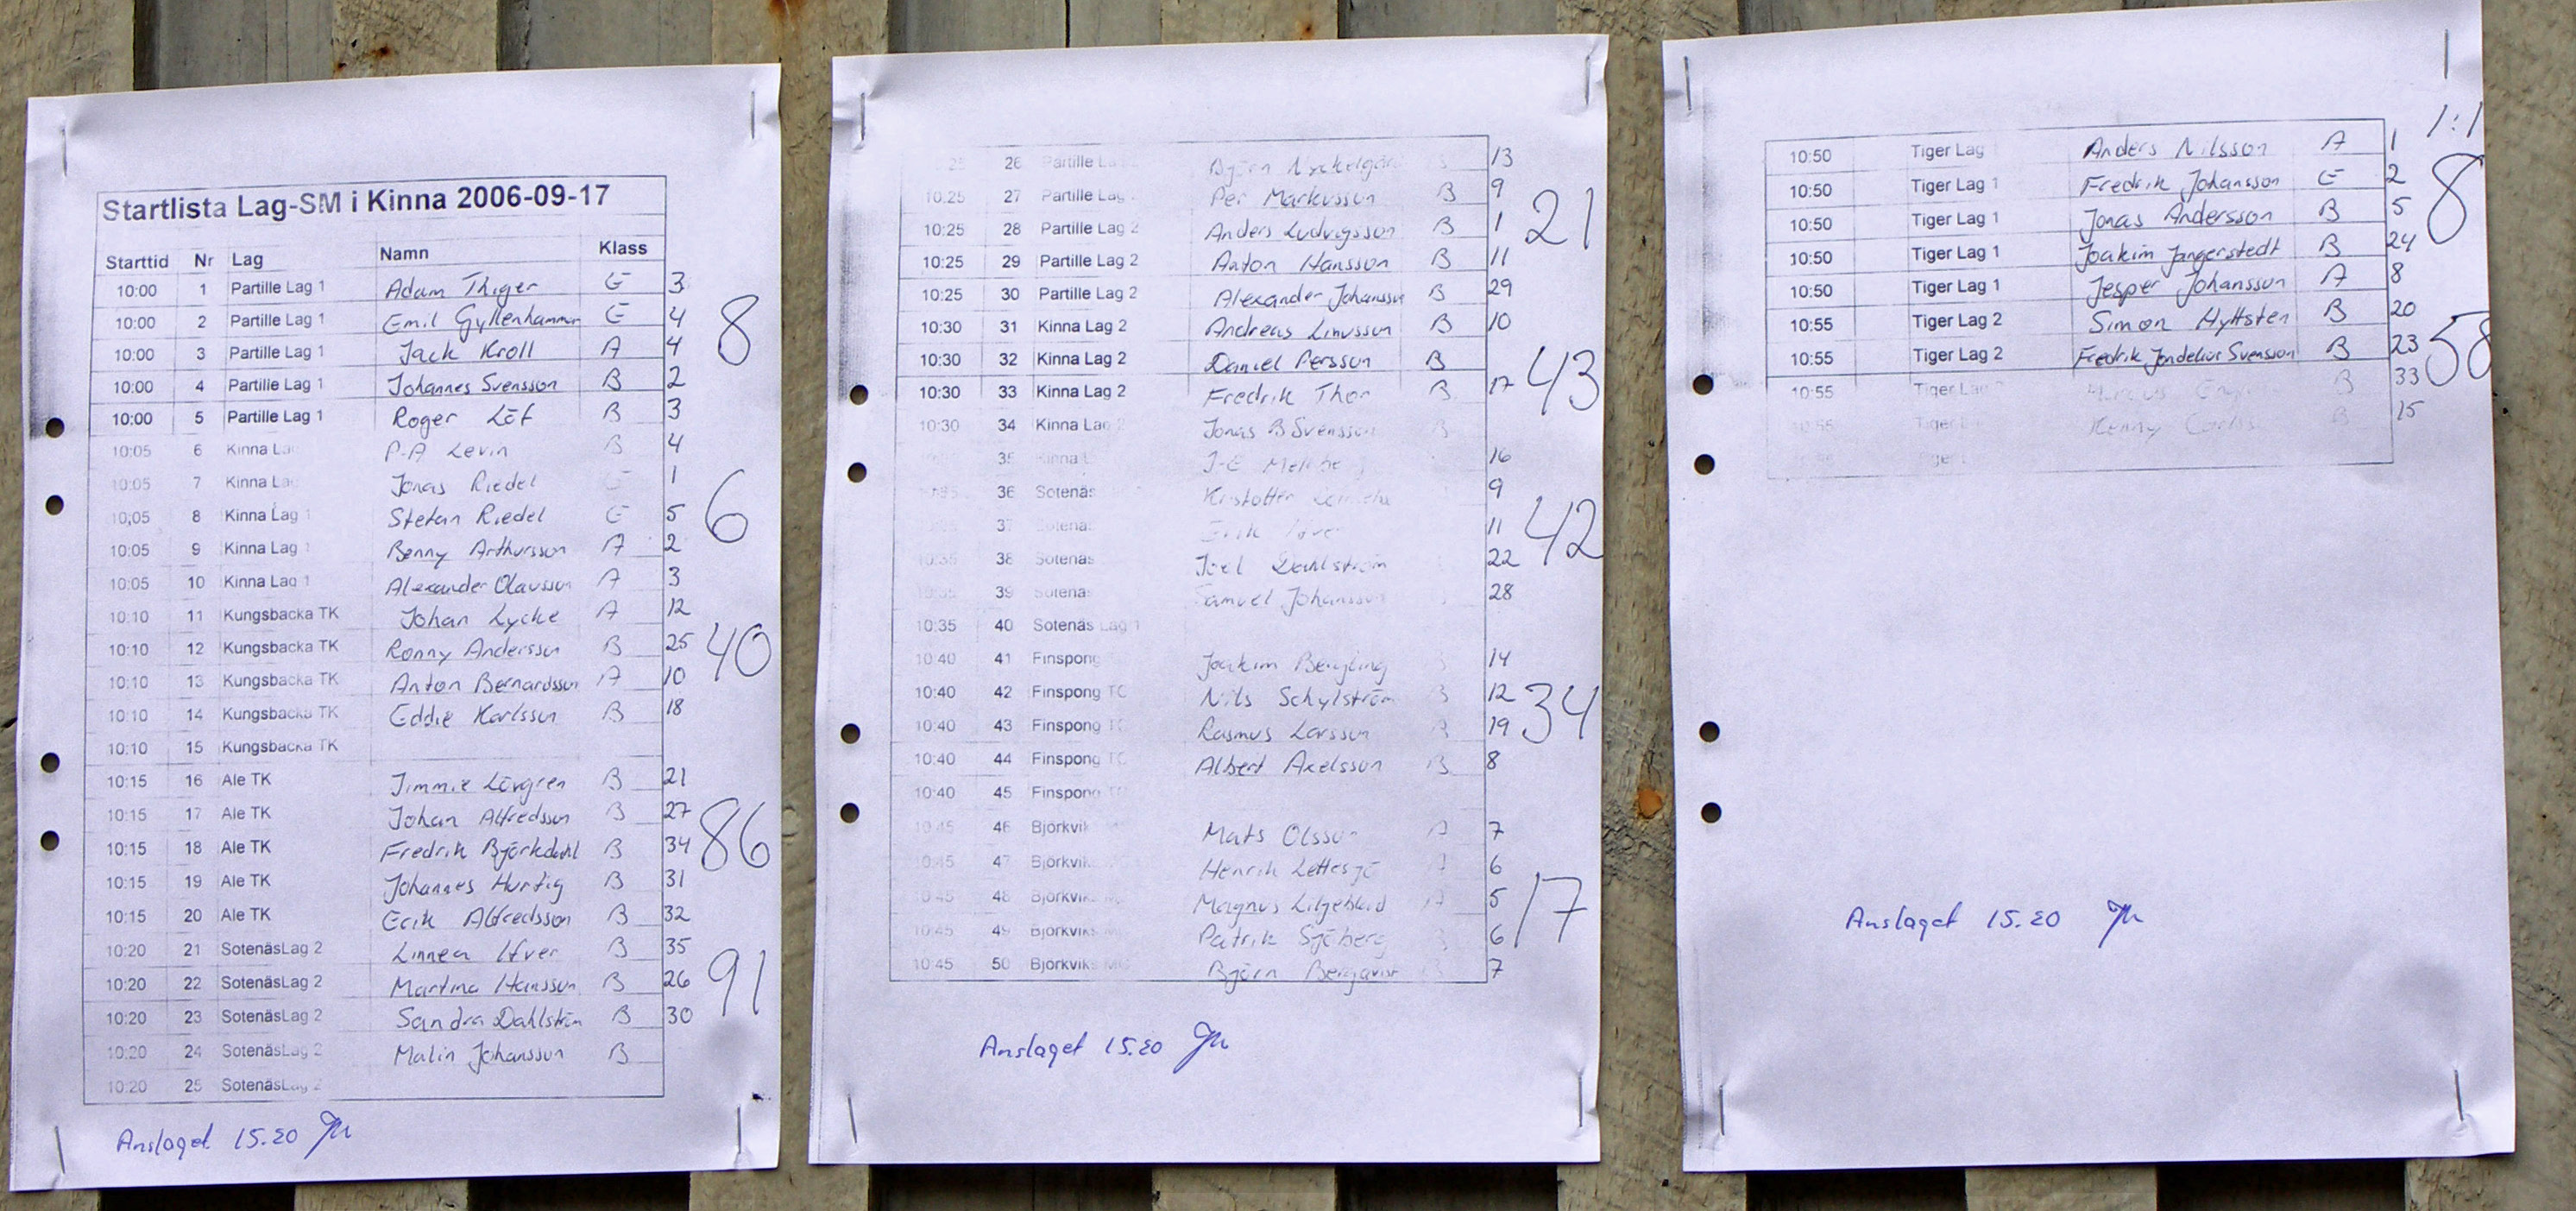 Startlista Lag-SM i Kinna 2006-09-17
Starttid Nr Lag Namn Klass
10:00 1 Partille Lag 1 Adam Thiger E 3
10:00 2 Partille Lag 1 Emil Gyllenhammar E 4
8
10:00 3 Partille Lag 1 Jack Kroll A 4
10:00 4 Partille Lag 1 Johannes Svensson B 2
10:00 5 Partille Lag 1 Roger Löf B 3
10:05 6 Kinna P-A Levin B 4
10:05 7 Kinna Jonas Riedel 1
6
10,05 8 Kinna Lag 1 Stefan Riedel E 5
10:05 9 Kinna Lag 1 Benny Arthursson A 2
10:05 10 Kinna Lag 1 Alexander Olausson A 3
10:10 11 Kungsbacka TK Johan Lycke A 12
10:10 12 Kungsbacka TK Ronny Andersson B 25
40
10:10 13 Kungsbacka TK Anton Bernardsson A 10
10:10 14 Kungsbacka TK Eddie Karlsson B 18
10:10 15 Kungsbacka TK
10:15 16 Ale TK Jimmie Lövgren B 21
10:15 17 Ale TK Johan Alfredsson B 27
86
10:15 18 Ale TK Fredrik Björkdahl B 34
10:15 19 Ale TK Johannes Hurtig B 31
10:15 20 Ale TK Erik Alfredsson B 32
10:20 21 SotenäsLag 2 Linnea Ifver B 35
10:20 22 SotenäsLag 2 Martina Hansson B 26
91
10:20 23 SotenäsLag 2 Sandra Dahlström B 30
10:20 24 SotenäsLag 2 Malin Johansson B
10:20 25 SotenäsLag 2
Anslaget 15.20
26 Partille Björn 13
10:25 27 Partille Lag Per Markusson B 9
21
10:25 28 Partille Lag 2 Anders Ludvigsson B 1
10:25 29 Partille Lag 2 Anton Hansson B 11
10:25 30 Partille Lag 2 Alexander Johansson B 29
10:30 31 Kinna Lag 2 Andreas Linusson B 10
10:30 32 Kinna Lag 2 Daniel Persson B
43
10:30 33 Kinna Lag 2 Fredrik Thor B 17
10:30 34 Kinna Lag 2 Jonas B Svensson B
35 Kinna J-E 16
36 Sotenäs Kristoffer 9
37 Sotenäs Erik 11
42
10:35 38 Sotenäs Joel Dahlström 22
39 Sotenäs Samuel Johansson 28
10:35 40 Sotenäs Lag 1
10:40 41 Finspong Joakim Bergling 14
10:40 42 Finspong TC Nils Schylström B 12
34
10:40 43 Finspong TC Rasmus Larsson B 19
10:40 44 Finspong TC Albert Axelsson B 8
10:40 45 Finspong TC
10:45 46 Björkvik Mats Olsson A 7
10:45 47 Björkviks Henrik A 6
10:45 48 Björkviks Magnus Liljeblad A 5
17
10:45 49 Björkviks Patrik Sjöberg 6
10:45 50 Björkviks MC Björn Bergqvist 7
Anslaget 15.20
1:1
10:50 Tiger Lag Anders Nilsson A 1
10:50 Tiger Lag 1 Fredrik Johansson E 2
8
10:50 Tiger Lag 1 Jonas Andersson B 5
10:50 Tiger Lag 1 Joakim Jangerstedt B 24
10:50 Tiger Lag 1 Jesper Johansson A 8
10:55 Tiger Lag 2 Simon Hyttsten B 20
58
10:55 Tiger Lag 2 Fredrik Svensson B 23
10:55 Tiger Lag B 33
10:55 Tiger Kenny B 15
Tiger
Anslaget 15.20